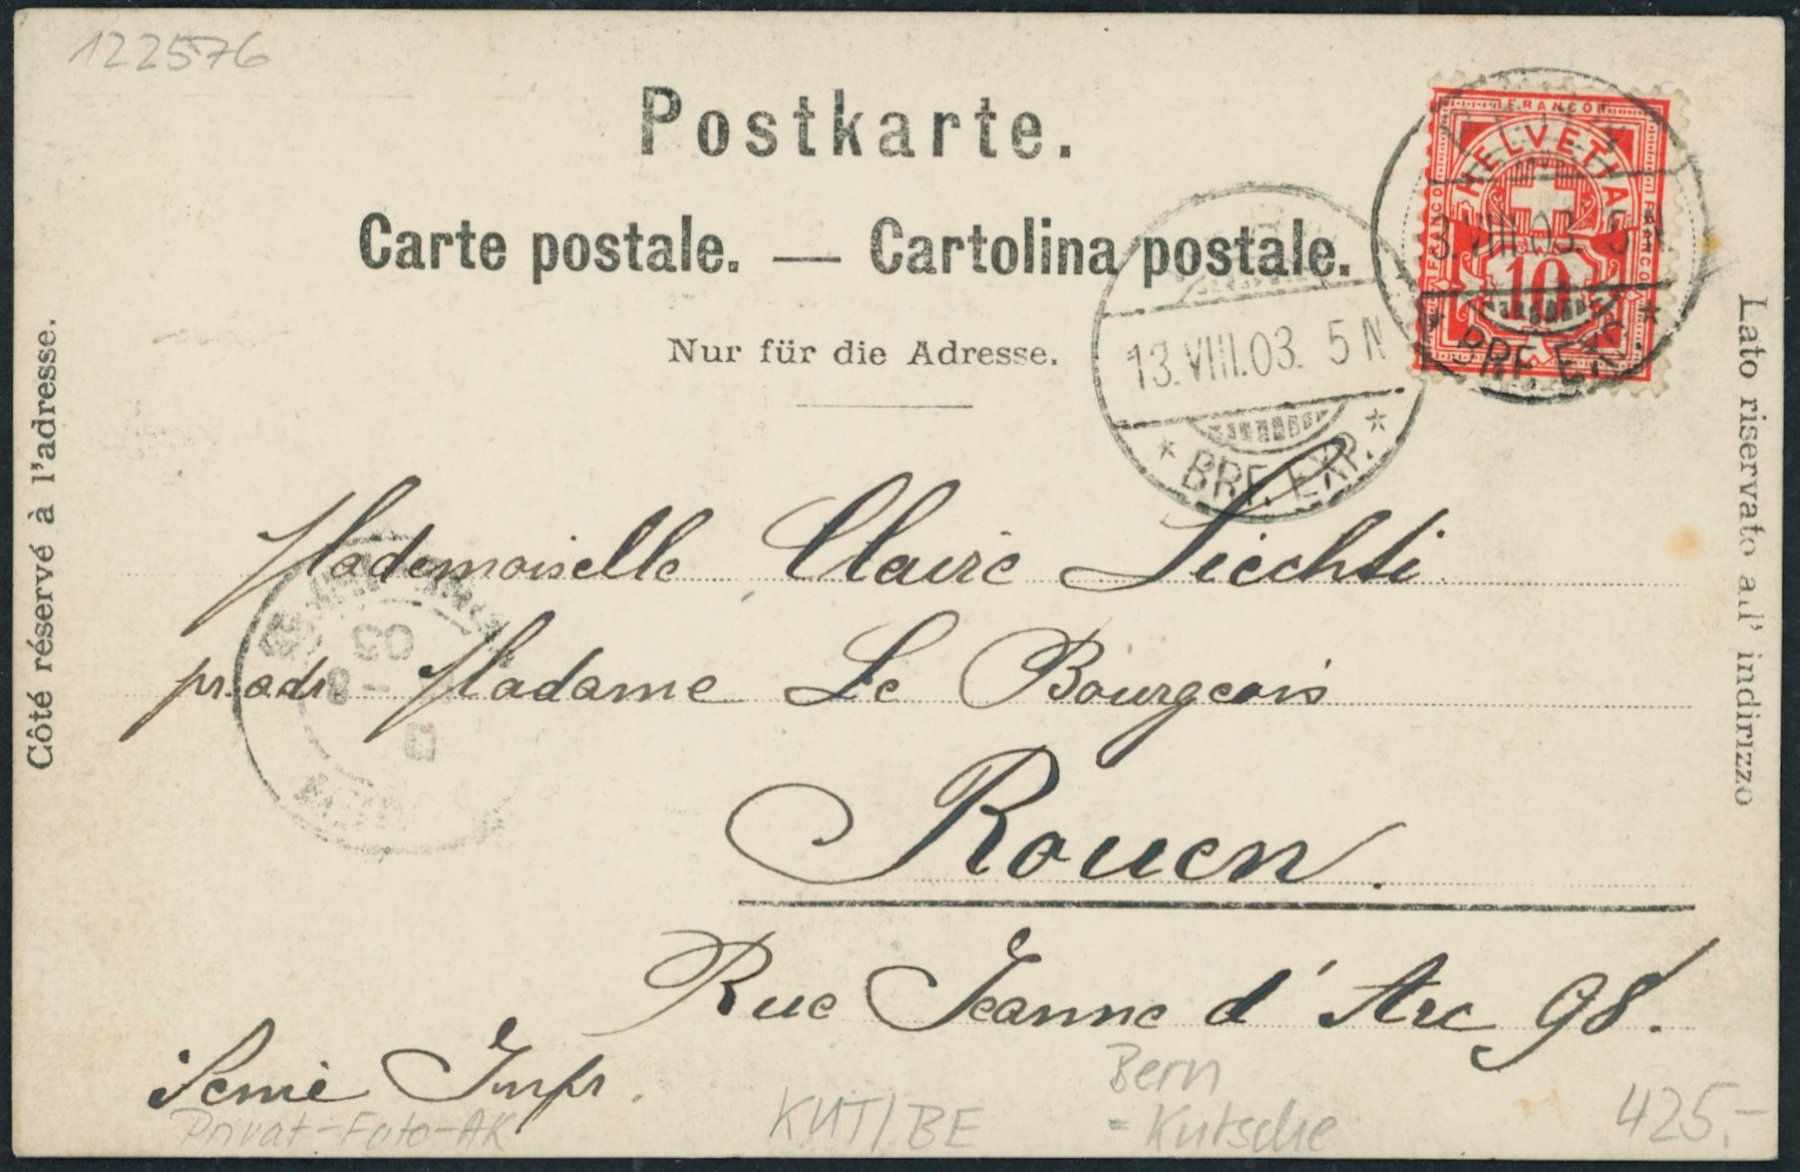 122576
Postkarte.
Carte postale. — Cartolina postale.
Nur für die Adresse.
FRANCO
HELVETIA
FRANCO
FRANCO
10
13.VIII.03. 5 N
* BRF. EXP. *
13.VIII.03. 5 N
* BRF. EXP. *
Côté réservé à l'adresse.
Lato riservato all' indirizzo
Mademoiselle Claire Liechti
pr. adr Madame Le Bourgeois
Rouen.
Rue Jeanne d'Arc 98.
03
Privat-Foto-AK
KUT/BE
Bern
= Kutsche
425.-